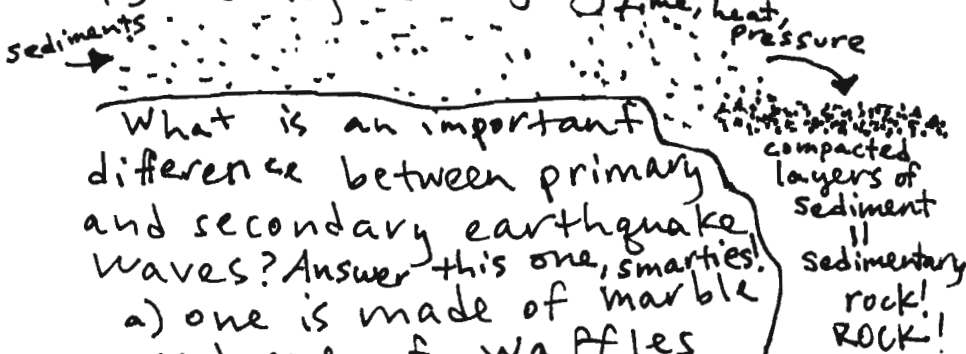 sediments
time, heat,
pressure
What is an important
difference between primary
and secondary earthquake
waves? Answer this one, smarties!
a) one is made of marble
waffles
compacted
layers of
sediment
=
sedimentary
rock!
ROCK!